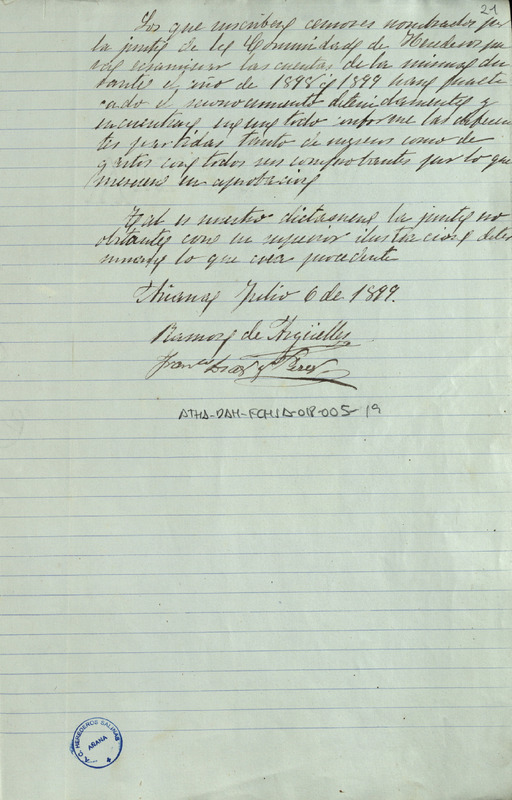 21
Los que suscriben censores nombrados por
la junta de la Comunidad de Herederos pa
ra examinar las cuentas de la misma du
rante el año de 1898 á 1899 han practi
cado el reconocimiento detenidamente y
encuentran en un todo conforme las diferen
tes partidas tanto de ingresos como de
gastos con todos sus comprobantes por lo que
merecen su aprobacion
Tal es nuestro dictamen la junta no
obstante con su superior ilustracion deter
minará lo que crea procedente
Añana Julio 6 de 1899.
Ramon de Argüelles
Franco Diaz y Perez
ATHA-DAH-FCHSA-018-005-19
A. C. HEREDEROS SALINAS
AÑANA